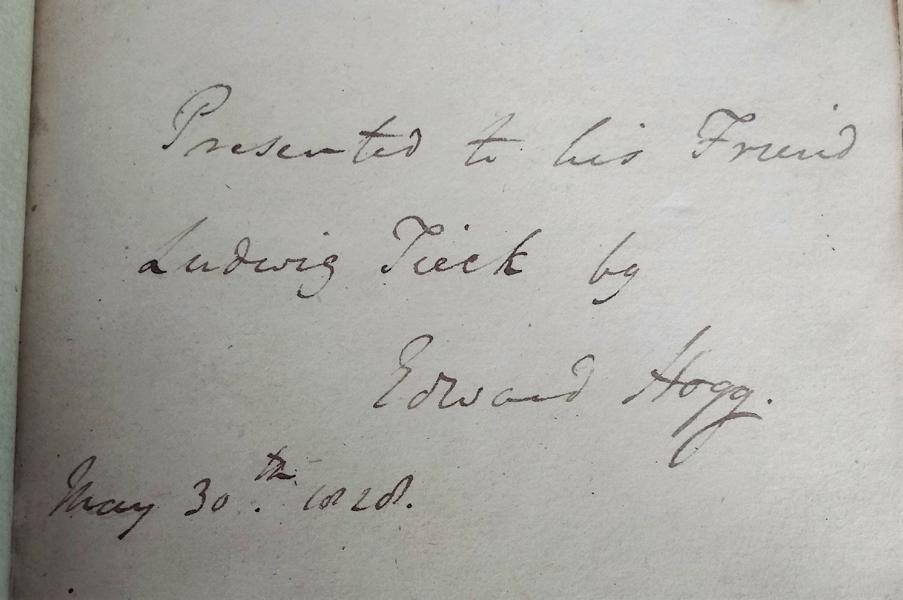 Presented to his Friend
Ludwig Tieck by
Edward Hogg.
May 30th. 1828.